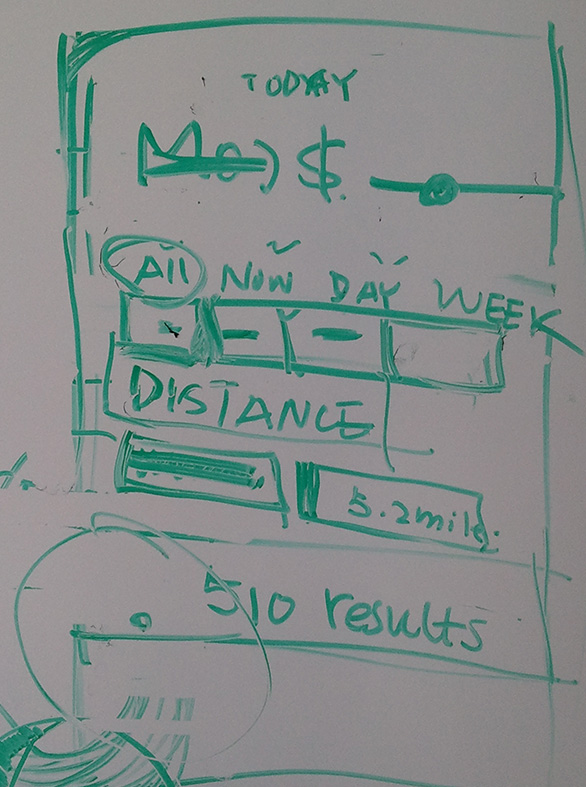 TODYAY
$
All NOW DAY WEEK
DISTANCE
5.2mile.
510 results